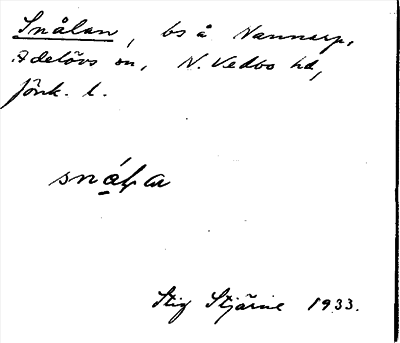 Snålan, bs å Vannarp,
Adelövs sn, N. Vedbo hd,
Jönk. l.
Stig Stjärne 1933.